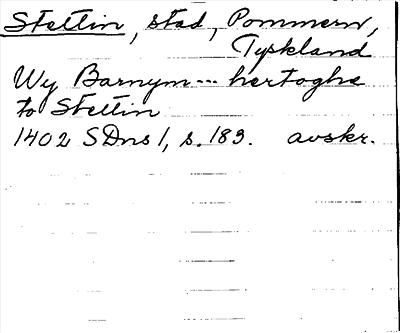 Stettin, stad, Pommern,
Tyskland
Wy Barnym--- hertoghe
to Stettin
1402 SDns 1, s. 183. avskr.